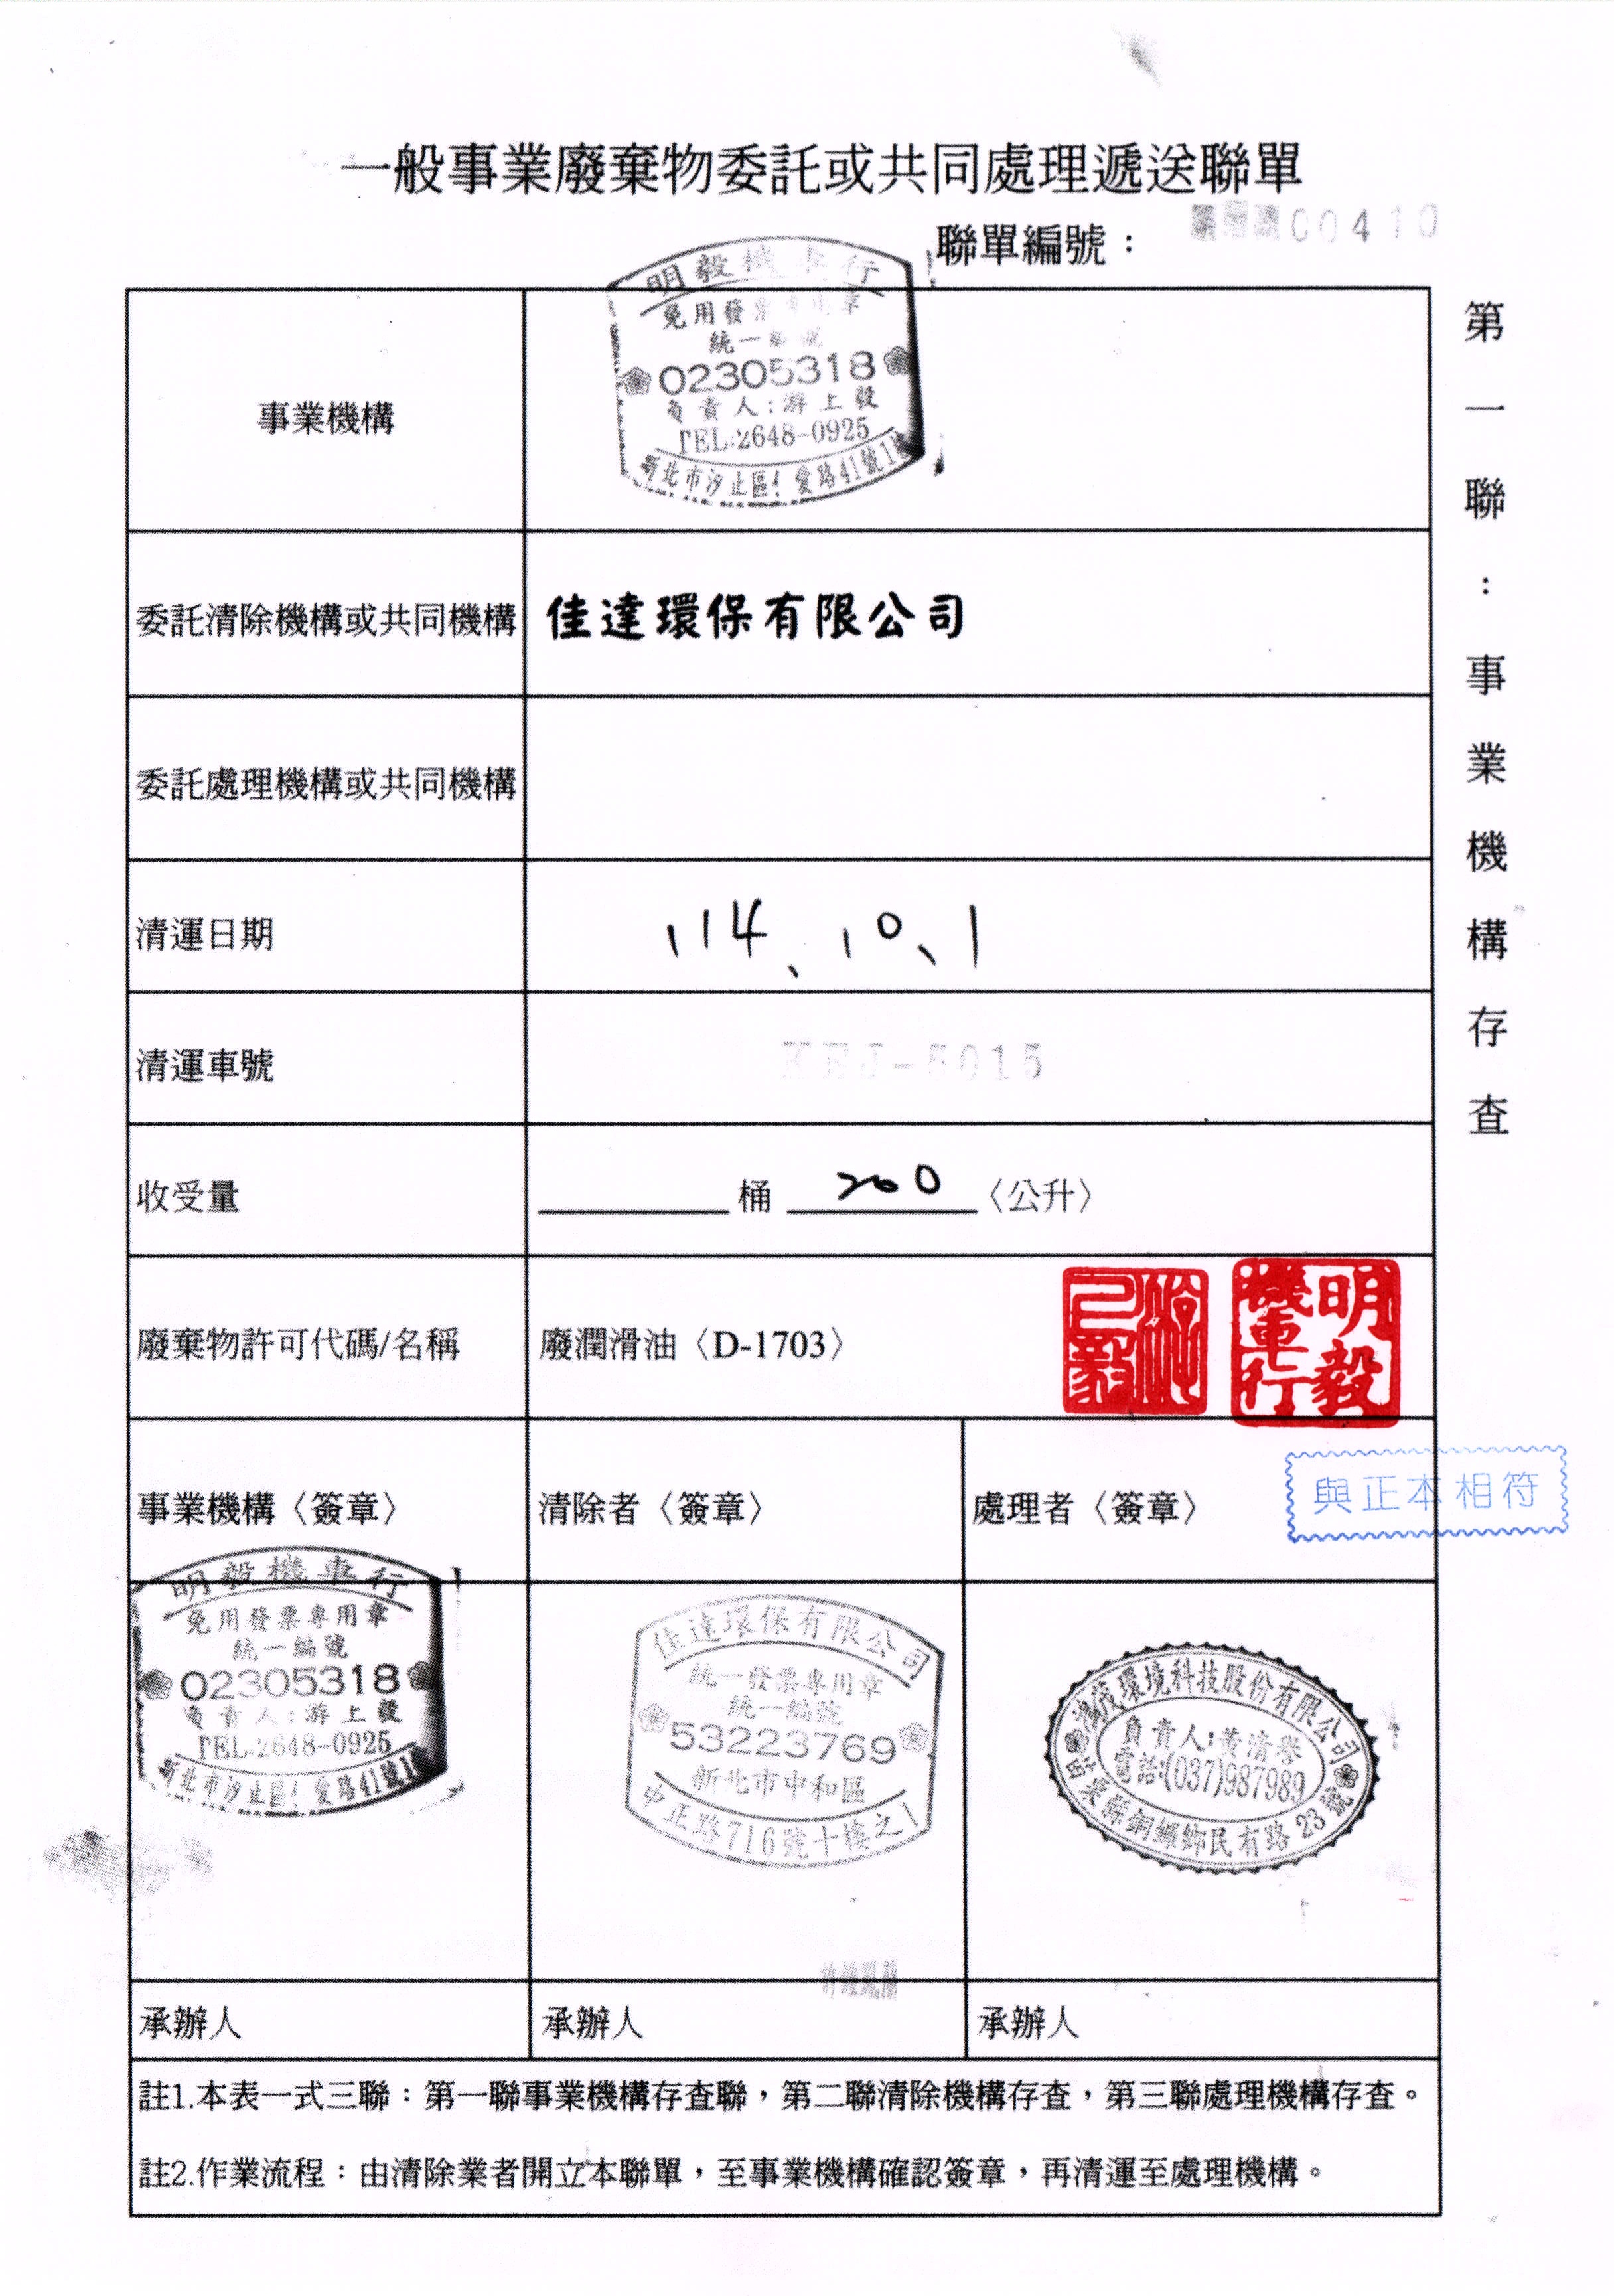 一般事業廢棄物委託或共同處理遞送聯單
聯單編號：
00410
第一聯：事業機構存查
事業機構
明毅機車行
免用發票專用章
統一編號
02305318
負責人:游上毅
TEL:2648-0925
新北市汐止區 愛路41號1
委託清除機構或共同機構
佳達環保有限公司
委託處理機構或共同機構
清運日期
114、10、1
清運車號
-5015
收受量
桶 200 〈公升〉
廢棄物許可代碼/名稱
廢潤滑油〈D-1703〉
明毅機車行
與正本相符
事業機構〈簽章〉
清除者〈簽章〉
處理者〈簽章〉
明毅機車行
免用發票專用章
統一編號
02305318
負責人:游上毅
TEL:2648-0925
新北市汐止區 愛路41號1
佳達環保有限公司
統一發票專用章
統一編號
53223769
新北市中和區
中正路716號十樓之1
鴻茂環境科技股份有限公司
負責人:黃清
電話:(037)987989
苗栗縣銅鑼鄉民有路23號
承辦人
承辦人
承辦人
註1.本表一式三聯：第一聯事業機構存查聯，第二聯清除機構存查，第三聯處理機構存查。
註2.作業流程：由清除業者開立本聯單，至事業機構確認簽章，再清運至處理機構。